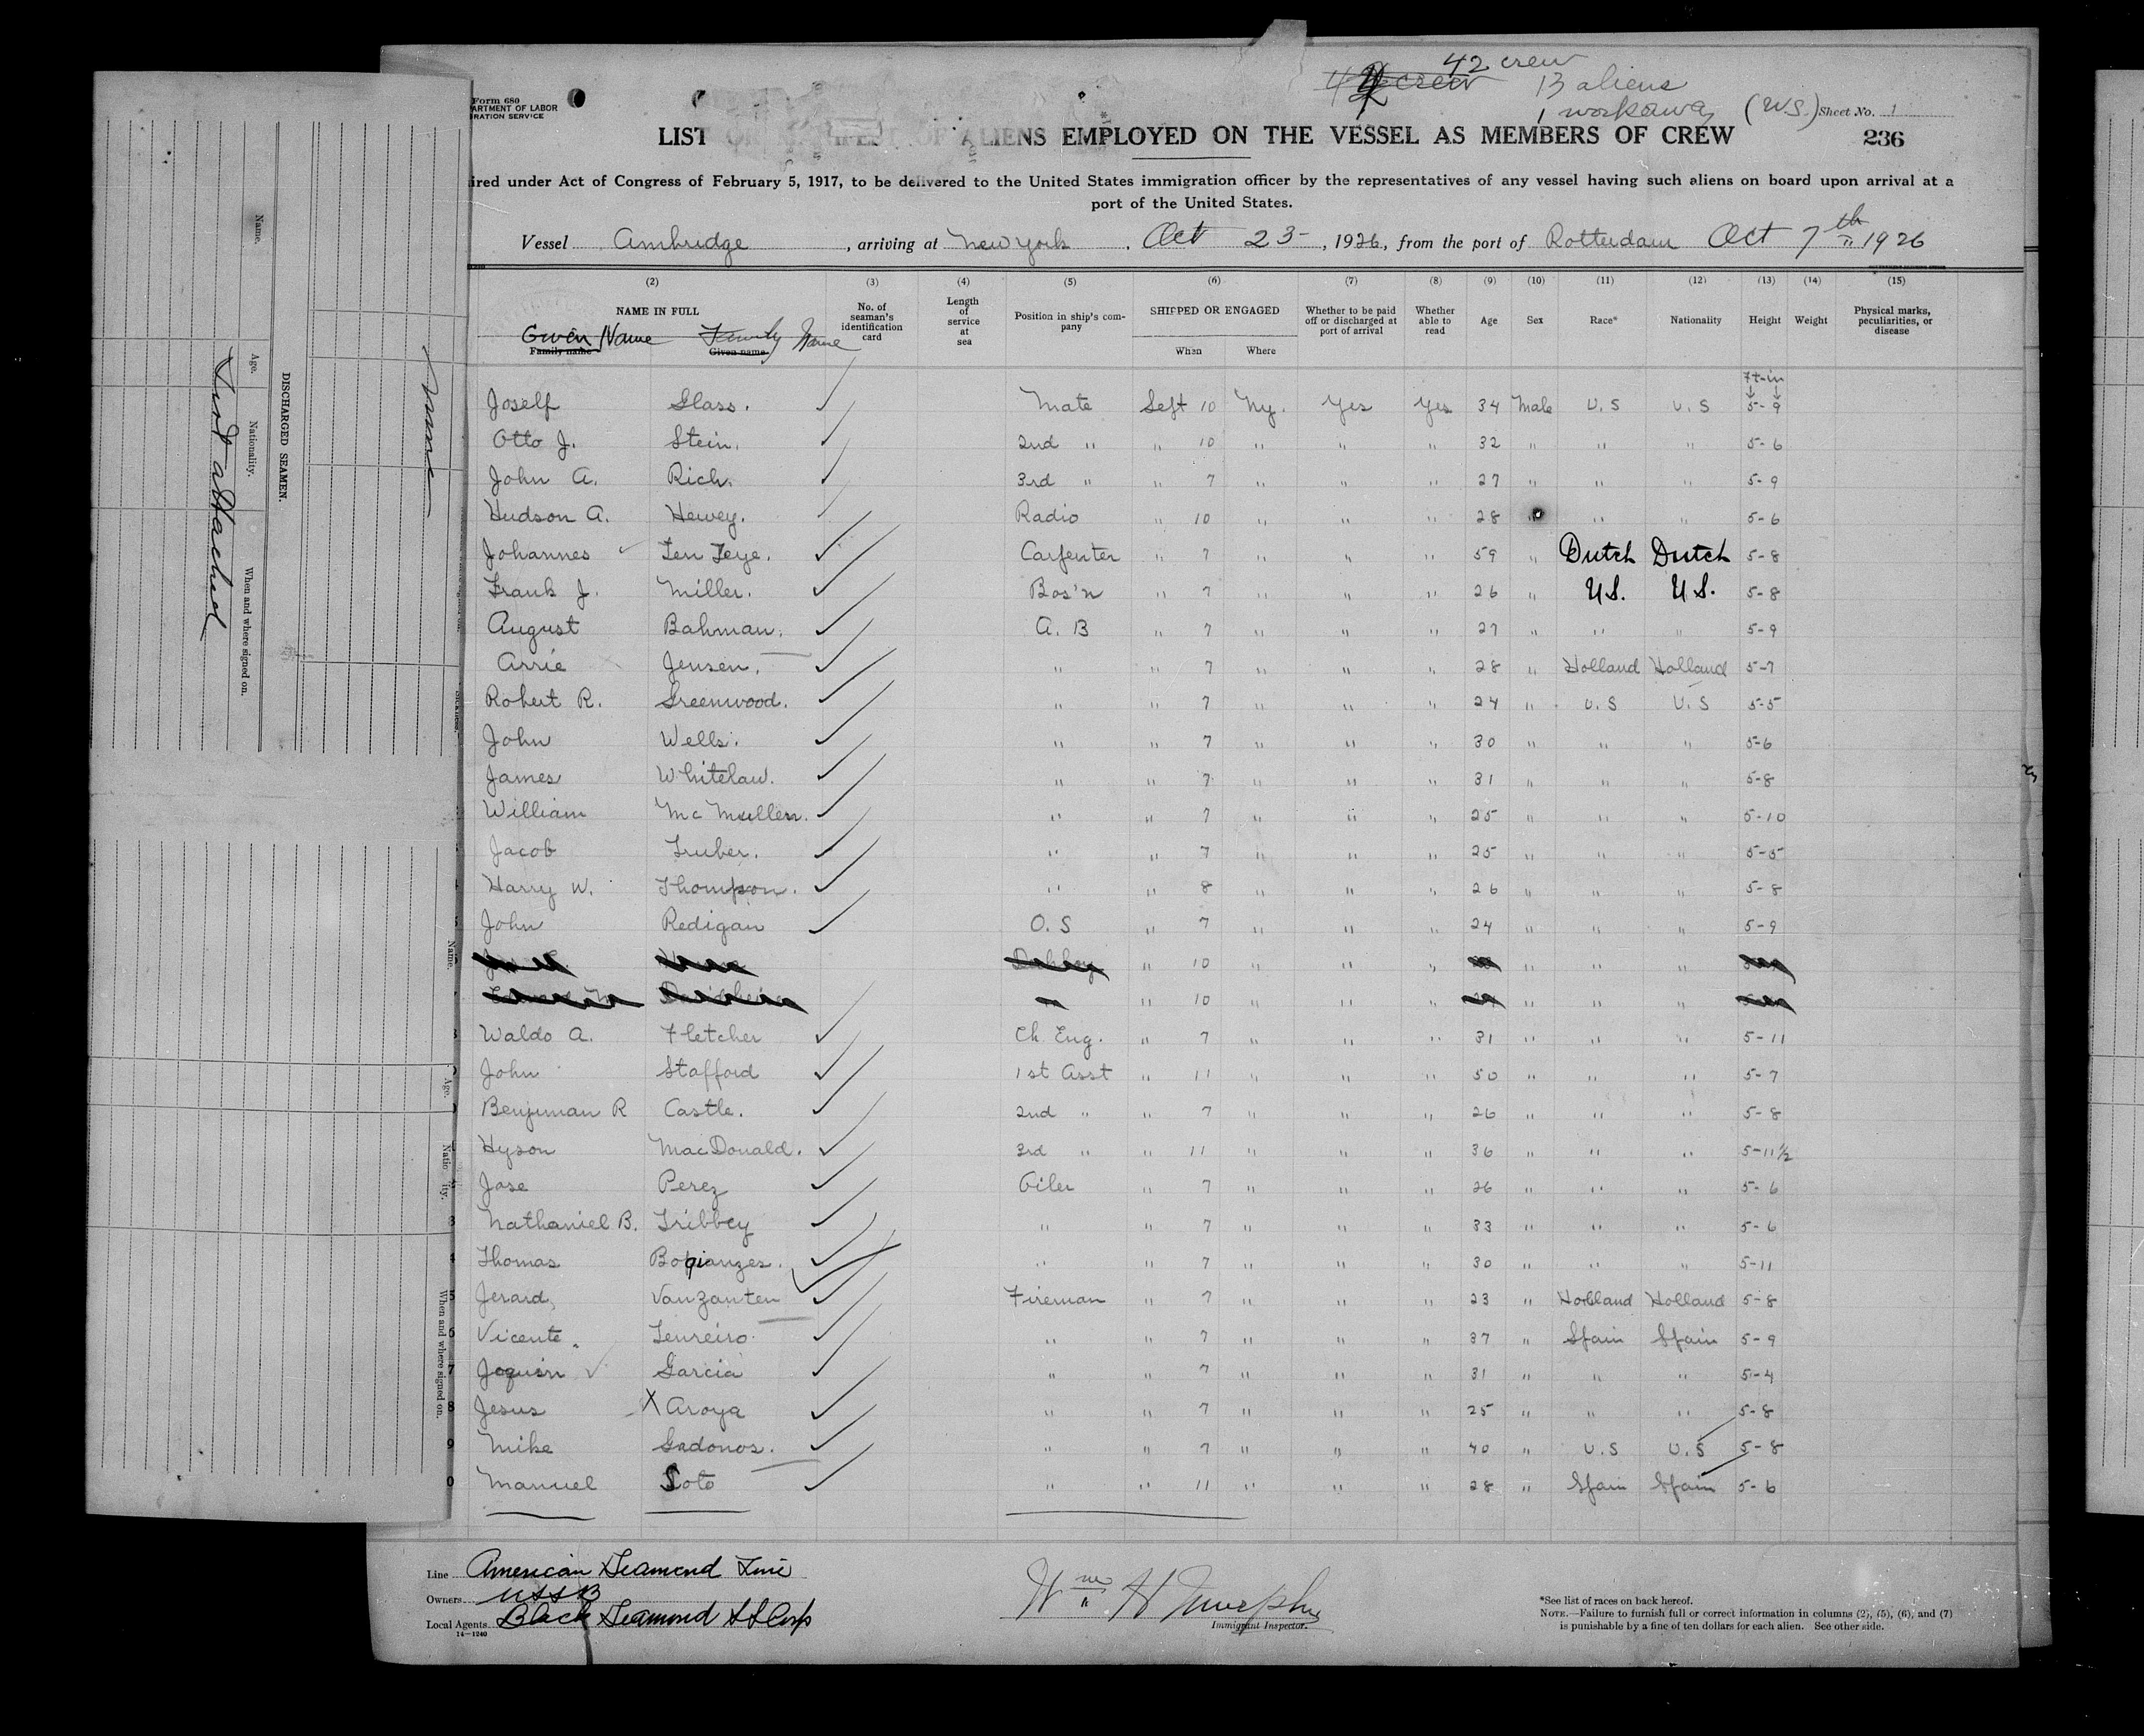 42 crew
13 aliens
1 workaway (U.S.) Sheet No. 1
Form 680
ARTMENT OF LABOR
RATION SERVICE
LIST OR MANIFEST OF ALIENS EMPLOYED ON THE VESSEL AS MEMBERS OF CREW 236
ired under Act of Congress of February 5, 1917, to be delivered to the United States immigration officer by the representatives of any vessel having such aliens on board upon arrival at a
port of the United States.
Vessel Ambridge, arriving at New York, Oct 23, 1926, from the port of Rotterdam Oct 7th 1926
(2) (3) (4) (5) (6) (7) (8) (9) (10) (11) (12) (13) (14) (15)
NAME IN FULL No. of seaman's identification card Length of service at sea Position in ship's company SHIPPED OR ENGAGED Whether to be paid off or discharged at port of arrival Whether able to read Age Sex Race* Nationality Height Weight Physical marks, peculiarities, or disease
Given Name Family Name
Family name Given name When Where
Ft-in
Joself Glass. Mate Sept 10 Ny. Yes Yes 34 Male U.S U.S 5-9
Otto J. Stein. 2nd " " 10 " " " 32 " " " 5-6
John A. Rich. 3rd " " 7 " " " 27 " " " 5-9
Hudson A. Hewey. Radio " 10 " " " 28 " " " 5-6
Johannes Ten Jeye. Carpenter " 7 " " " 59 " Dutch Dutch 5-8
Frank J. Miller. Bos'n " 7 " " " 26 " U.S. U.S. 5-8
August Bahman. A.B " 7 " " " 27 " " " 5-9
Arrie Jensen. " " 7 " " " 28 " Holland Holland 5-7
Robert R. Greenwood. " " 7 " " " 24 " U.S U.S 5-5
John Wells. " " 7 " " " 30 " " " 5-6
James Whitelaw. " " 7 " " " 31 " " " 5-8
William Mc Mullen. " " 7 " " " 25 " " " 5-10
Jacob Truber. " " 7 " " " 25 " " " 5-5
Harry W. Thompson. " " 8 " " " 26 " " " 5-8
John Redigan O.S " 7 " " " 24 " " " 5-9
" 10 " " " " " "
" 10 " " " " " "
Waldo A. Fletcher Ch. Eng. " 7 " " " 31 " " " 5-11
John Stafford 1st Asst " 11 " " " 50 " " " 5-7
Benjiman R Castle. 2nd " " 7 " " " 26 " " " 5-8
Hyson MacDonald. 3rd " " 11 " " " 36 " " " 5-11½
Jose Perez Oiler " 7 " " " 26 " " " 5-6
Nathaniel B. Tribbey " " 7 " " " 33 " " " 5-6
Thomas " " 7 " " " 30 " " " 5-11
Jerard Vanzanten Fireman " 7 " " " 23 " Holland Holland 5-8
Vicente Tenreiro " " 7 " " " 37 " Spain Spain 5-9
Joquin Garcia " " 7 " " " 31 " " " 5-4
Jesus X Aroya " " 7 " " " 25 " " " 5-8
Mike Gadonos. " " 7 " " " 40 " U.S U.S 5-8
Manuel Soto " " 11 " " " 28 " Spain Spain 5-6
Line American Diamond Line
Owners USSB
Local Agents Black Diamond SS Corp
14-1240
Wm H Murphy
Immigrant Inspector.
*See list of races on back hereof.
NOTE.—Failure to furnish full or correct information in columns (2), (5), (6), and (7)
is punishable by a fine of ten dollars for each alien. See other side.
DISCHARGED SEAMEN.
Name. Age. Nationality. When and where signed on.
List attached
None
Name. Age. When and where signed on.